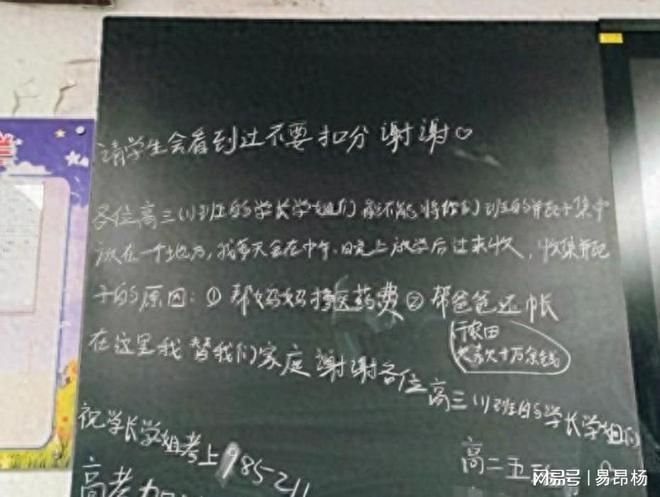 请学生会看到过不要扣分 谢谢♡
各位高三(1)班的学长学姐们 能不能将你们班的瓶子集中
放在一个地方,我每天会在中午、晚上放学后过来收,收集瓶
子的原因:① 帮妈妈挣医药费 ② 帮爸爸还帐
行农田
十万余钱
在这里我替我们家庭谢谢各位高三(1)班的学长学姐们
祝学长学姐考上985211
高二五
高考加
搜狐号|易昂杨